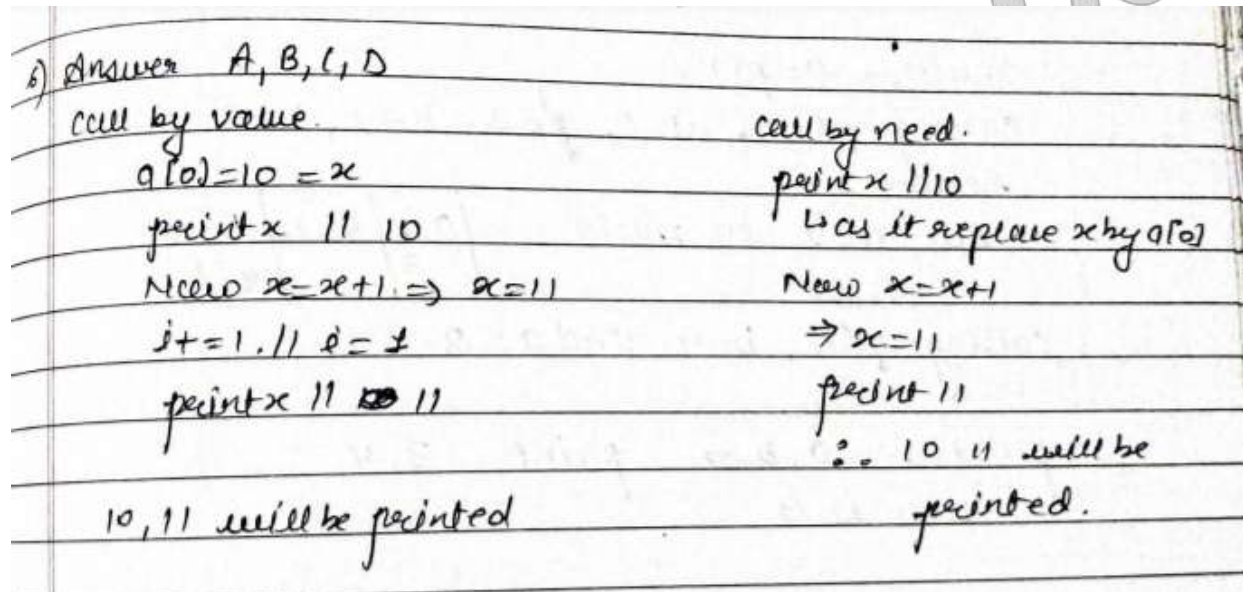 6) Answer A, B, C, D
call by value.
a[0]=10 = x
print x // 10
Now x=x+1. => x=11
i+=1. // i=1
print x // 11
10, 11 will be printed
call by need.
print x //10.
↳ as it replace x by a[0]
Now x=x+1
⇒ x=11
print 11
∴ 10 11 will be
printed.